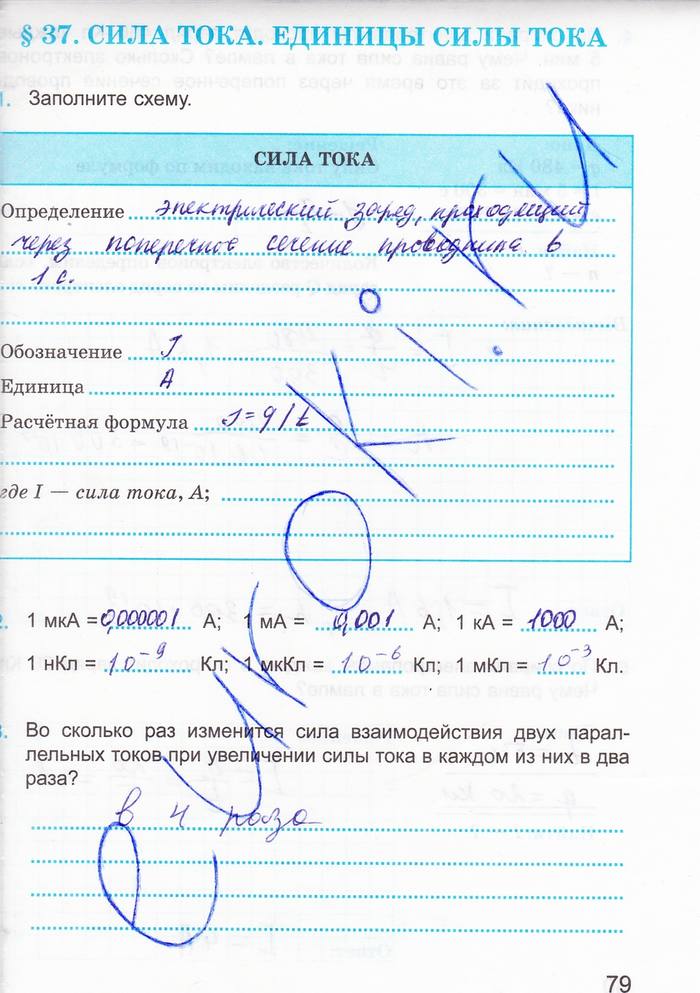 § 37. СИЛА ТОКА. ЕДИНИЦЫ СИЛЫ ТОКА
1. Заполните схему.
СИЛА ТОКА
Определение электрический заряд, проходящий
через поперечное сечение проводника в
1 с.
Обозначение I
Единица А
Расчётная формула I = q/t
где I — сила тока, А;
1 мкА = 0,000001 А; 1 мА = 0,001 А; 1 кА = 1000 А;
1 нКл = 10⁻⁹ Кл; 1 мкКл = 10⁻⁶ Кл; 1 мКл = 10⁻³ Кл.
3. Во сколько раз изменится сила взаимодействия двух парал-
лельных токов при увеличении силы тока в каждом из них в два
раза?
в 4 раза
79